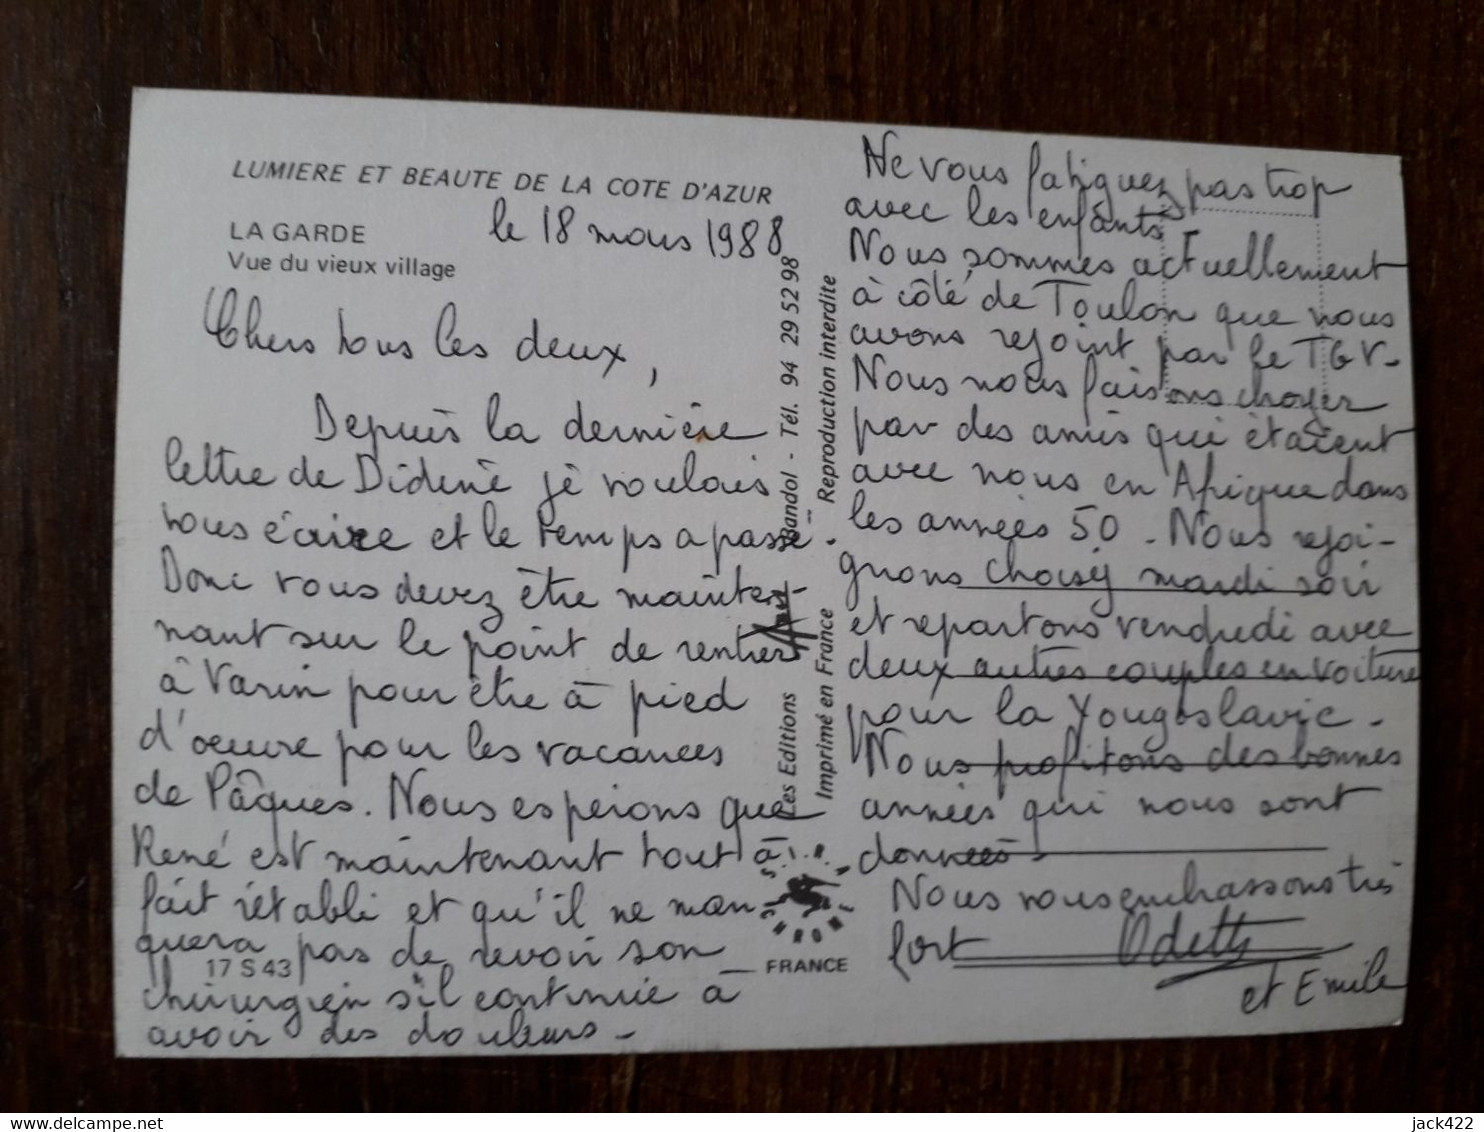 LUMIERE ET BEAUTE DE LA COTE D'AZUR
LA GARDE
Vue du vieux village
le 18 mars 1988
Chers tous les deux,
Depuis la dernière
lettre de Didine je voulais
vous écrire et le temps a passé.
Donc vous devez être mainte-
nant sur le point de rentrer
à Varin pour être à pied
d'oeuvre pour les vacances
de Pâques. Nous espérons que
René est maintenant tout à
fait rétabli et qu'il ne man-
quera pas de revoir son
chirurgien s'il continue à
avoir des douleurs -
17 S 43
Les Editions Bandol - Tél. 94 29 52 98
Imprimé en France Reproduction interdite
FRANCE
Ne vous fatiguez pas trop
avec les enfants
Nous sommes actuellement
à côté de Toulon que nous
avons rejoint par le TGV-
Nous nous faisons choyer
par des amis qui étaient
avec nous en Afrique dans
les années 50 - Nous rejoi-
gnons Choisy mardi soir
et repartons vendredi avec
deux autres couples en voiture
pour la Yougoslavie -
Nous profitons des bonnes
années qui nous sont
données -
Nous vous embrassons très
fort Odette
et Emile
delcampe.net
jack422